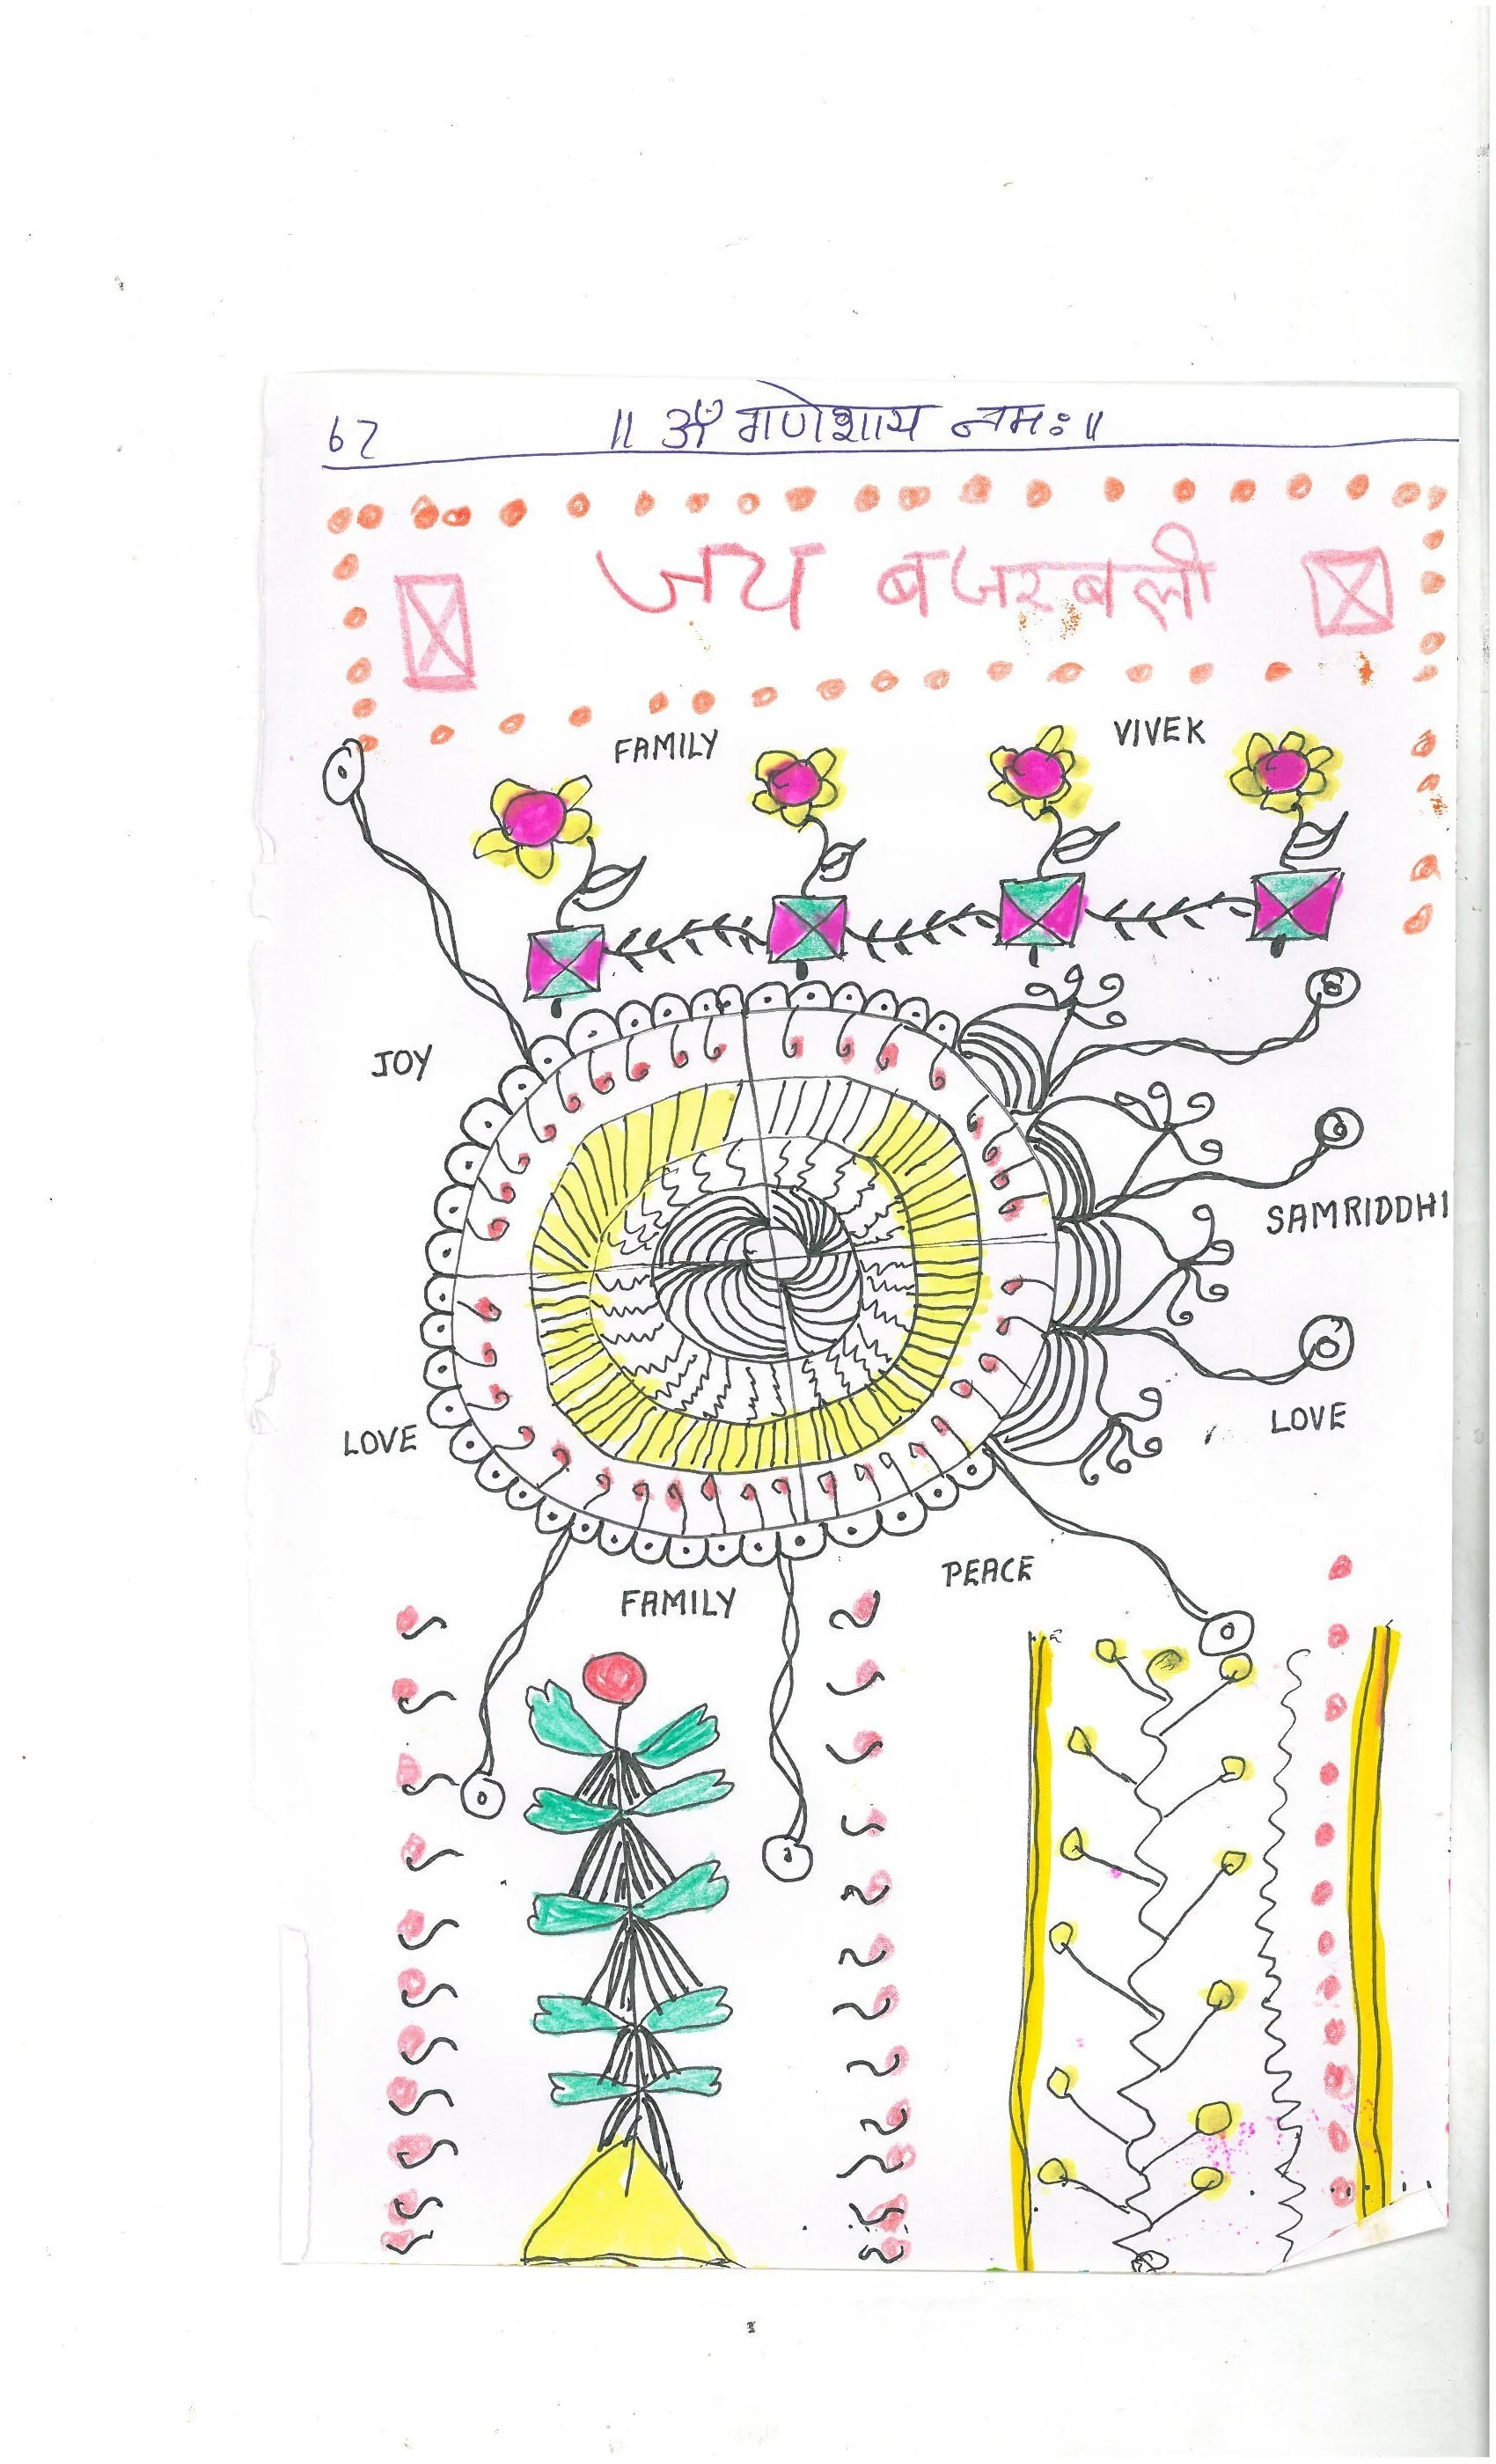 67 ॥ ॐ गणेशाय नमः ॥
जय बजरबली
FAMILY VIVEK
JOY
SAMRIDDHI
LOVE LOVE
FAMILY PEACE